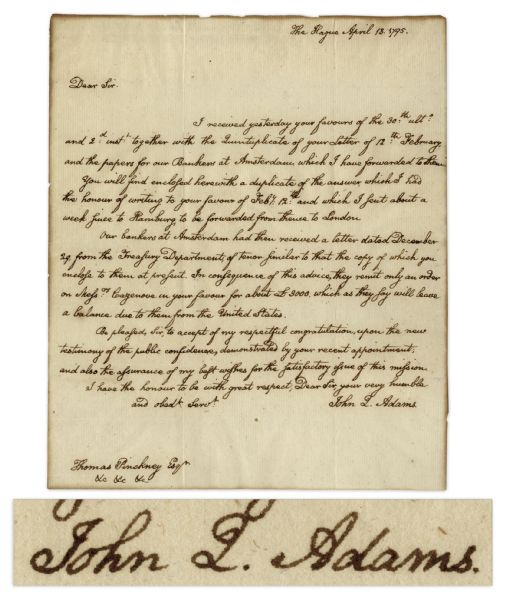 The Hague April 13. 1795.
Dear Sir.
I received yesterday your favours of the 30.th ult.o
and 2.d inst.t together with the Quintuplicate of your Letter of 12.th February
and the papers for our Bankers at Amsterdam which I have forwarded to them.
You will find enclosed herewith a duplicate of the answer which I had
the honour of writing to your favour of Feb.y 12.th and which I sent about a
week since to Hamburg, to be forwarded from thence to London.
Our bankers at Amsterdam had then received a letter dated December
29 from the Treasury Department, of tenor similar to that the copy of which you
enclose to them at present. In consequence of this advice, they remit only an order
on Mess.rs Cazenove in your favour for about £ 3000, which as they say will leave
a balance due to them from the United States.
Be pleased, Sir, to accept of my respectful congratulation, upon the new
testimony of the public confidence, demonstrated by your recent appointment;
and also the assurance of my best wishes for the satisfactory issue of this mission.
I have the honour to be with great respect, Dear Sir, your very humble
and obed.t Serv.t John Q. Adams.
Thomas Pinckney Esq.r
&c &c &c
John Q. Adams.